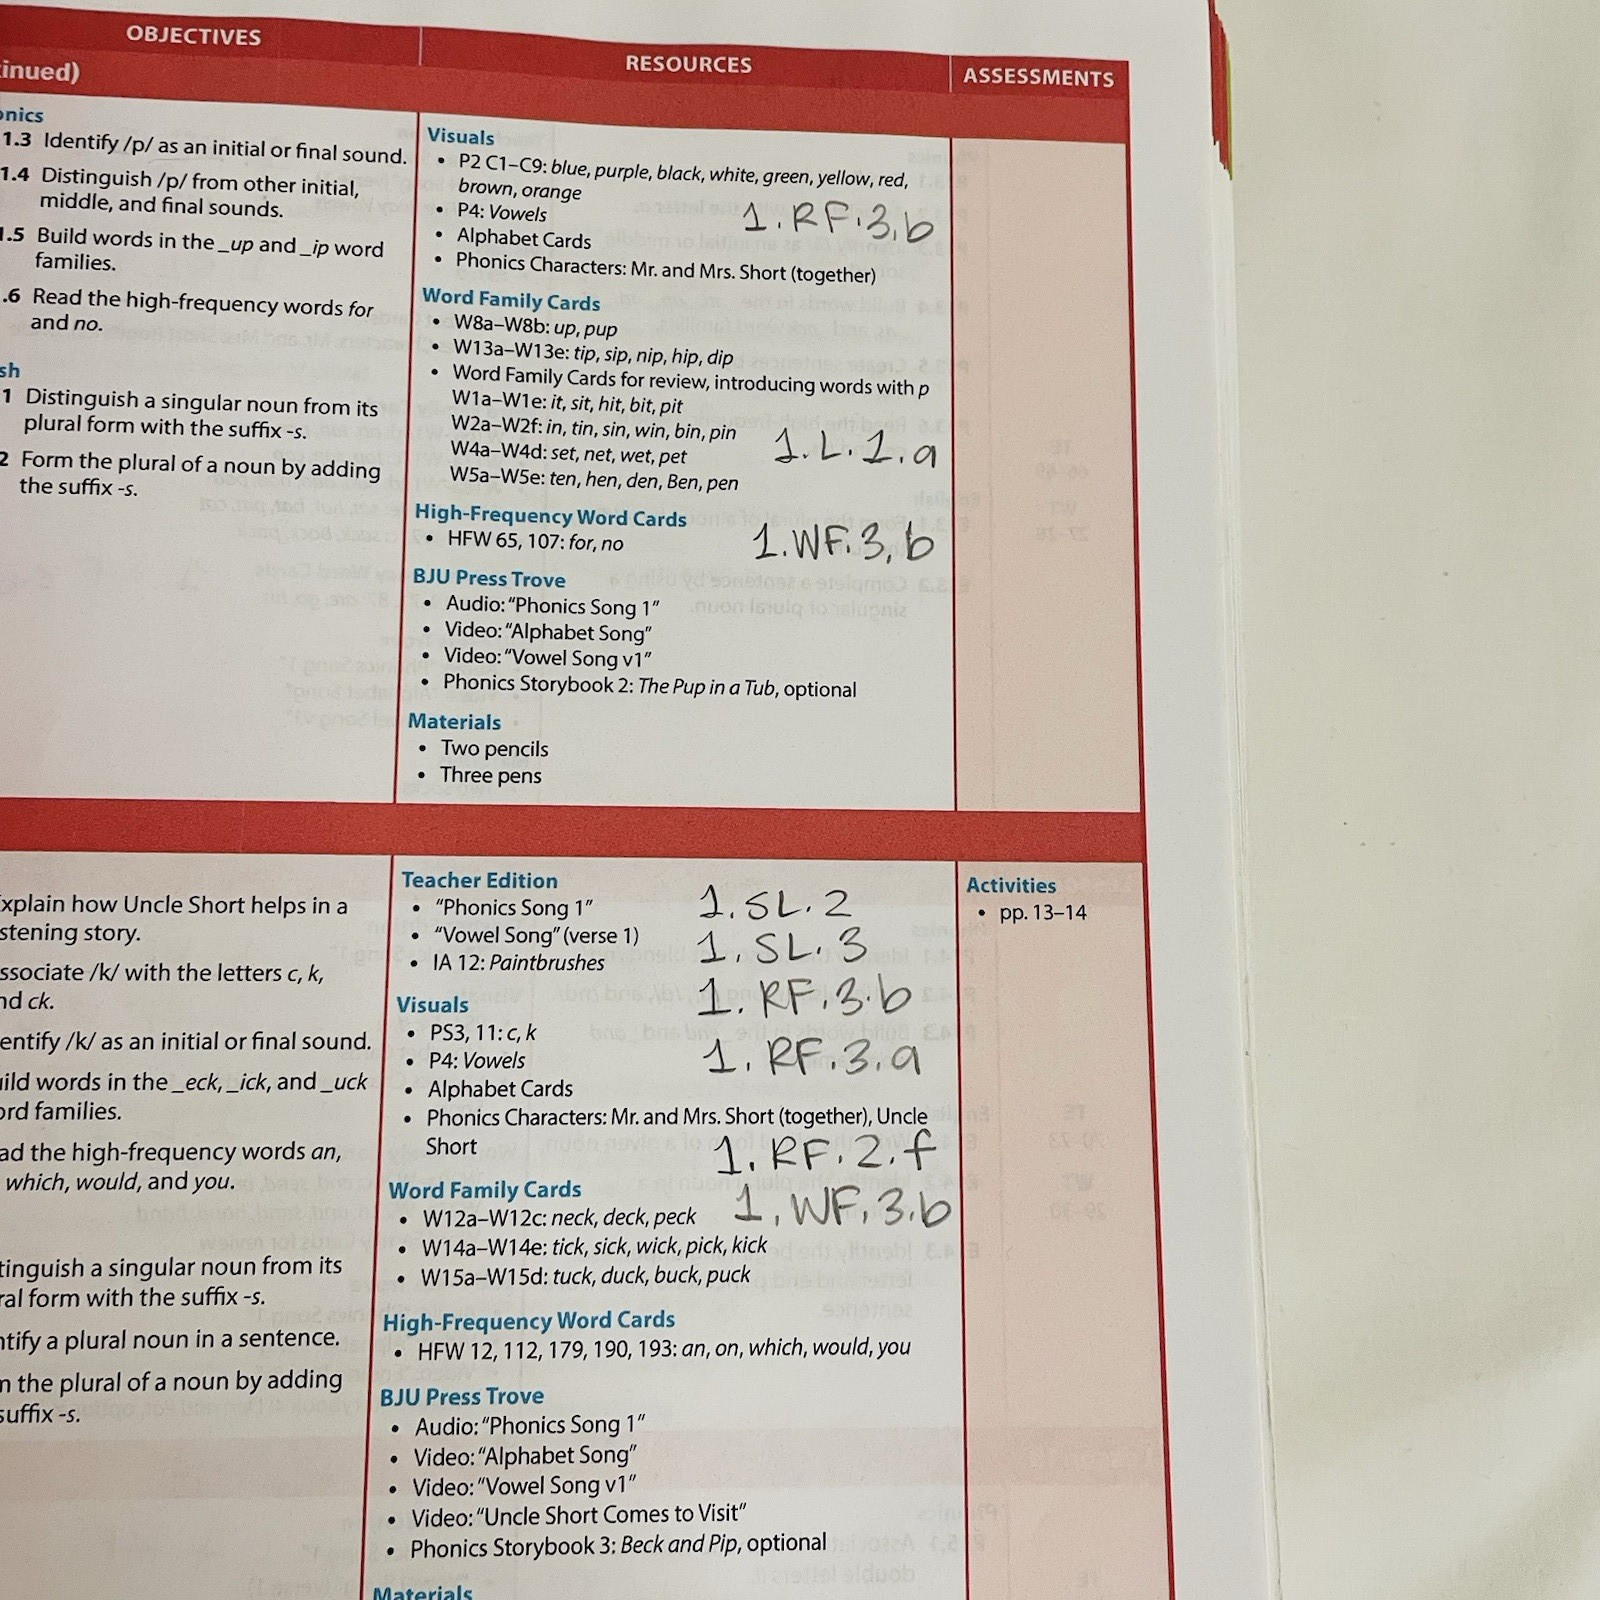 OBJECTIVES
RESOURCES
ASSESSMENTS
inued)
onics
1.3 Identify /p/ as an initial or final sound.
1.4 Distinguish /p/ from other initial,
middle, and final sounds.
1.5 Build words in the _up and _ip word
families.
.6 Read the high-frequency words for
and no.
sh
1 Distinguish a singular noun from its
plural form with the suffix -s.
2 Form the plural of a noun by adding
the suffix -s.
Visuals
• P2 C1–C9: blue, purple, black, white, green, yellow, red,
brown, orange
• P4: Vowels
1.RF.3.b
• Alphabet Cards
• Phonics Characters: Mr. and Mrs. Short (together)
Word Family Cards
• W8a–W8b: up, pup
• W13a–W13e: tip, sip, nip, hip, dip
• Word Family Cards for review, introducing words with p
W1a–W1e: it, sit, hit, bit, pit
W2a–W2f: in, tin, sin, win, bin, pin
W4a–W4d: set, net, wet, pet
1.L.1.a
W5a–W5e: ten, hen, den, Ben, pen
High-Frequency Word Cards
• HFW 65, 107: for, no
1.WF.3,b
BJU Press Trove
• Audio: “Phonics Song 1”
• Video: “Alphabet Song”
• Video: “Vowel Song v1”
• Phonics Storybook 2: The Pup in a Tub, optional
Materials
• Two pencils
• Three pens
xplain how Uncle Short helps in a
stening story.
ssociate /k/ with the letters c, k,
nd ck.
entify /k/ as an initial or final sound.
uild words in the _eck, _ick, and _uck
ord families.
ad the high-frequency words an,
which, would, and you.
tinguish a singular noun from its
ral form with the suffix -s.
ntify a plural noun in a sentence.
m the plural of a noun by adding
suffix -s.
Teacher Edition
• “Phonics Song 1”
1.SL.2
• “Vowel Song” (verse 1)
1.SL.3
• IA 12: Paintbrushes
Visuals
1.RF.3.b
• PS3, 11: c, k
• P4: Vowels
1.RF.3.a
• Alphabet Cards
• Phonics Characters: Mr. and Mrs. Short (together), Uncle
Short
1.RF.2.f
Word Family Cards
1.WF.3.b
• W12a–W12c: neck, deck, peck
• W14a–W14e: tick, sick, wick, pick, kick
• W15a–W15d: tuck, duck, buck, puck
High-Frequency Word Cards
• HFW 12, 112, 179, 190, 193: an, on, which, would, you
BJU Press Trove
• Audio: “Phonics Song 1”
• Video: “Alphabet Song”
• Video: “Vowel Song v1”
• Video: “Uncle Short Comes to Visit”
• Phonics Storybook 3: Beck and Pip, optional
Materials
Activities
• pp. 13–14